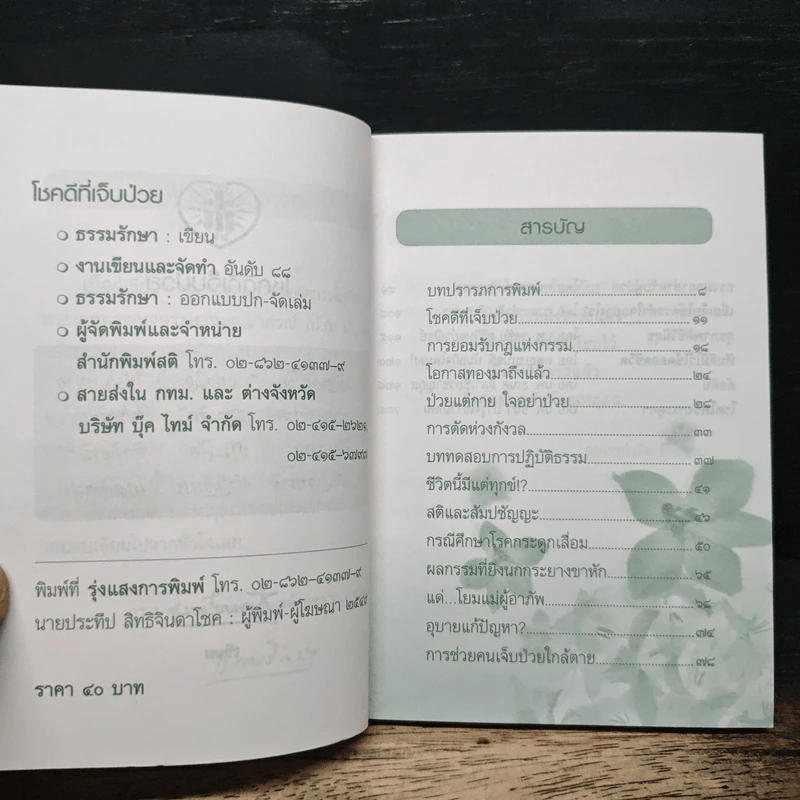 โชคดีที่เจ็บป่วย
ธรรมรักษา : เขียน
งานเขียนและจัดทำ อันดับ ๘๘
ธรรมรักษา : ออกแบบปก-จัดเล่ม
ผู้จัดพิมพ์และจำหน่าย
สำนักพิมพ์สติ โทร. ๐๒-๘๖๒-๔๑๓๗-๙
สายส่งใน กทม. และ ต่างจังหวัด
บริษัท บุ๊ค ไทม์ จำกัด โทร. ๐๒-๔๑๕-๒๖๒๑,
๐๒-๔๑๕-๖๗๙๗
พิมพ์ที่ รุ่งแสงการพิมพ์ โทร. ๐๒-๘๖๒-๔๑๓๗-๙
นายประทีป สิทธิจินดาโชค : ผู้พิมพ์-ผู้โฆษณา ๒๕๔๙
ราคา ๔๐ บาท
สารบัญ
บทปรารภการพิมพ์ ๘
โชคดีที่เจ็บป่วย ๑๑
การยอมรับกฎแห่งกรรม ๑๘
โอกาสทองมาถึงแล้ว ๒๔
ป่วยแต่กาย ใจอย่าป่วย ๒๘
การตัดห่วงกังวล ๓๓
บททดสอบการปฏิบัติธรรม ๓๗
ชีวิตนี้มีแต่ทุกข์!? ๔๑
สติและสัมปชัญญะ ๔๖
กรณีศึกษาโรคกระดูกเสื่อม ๕๐
ผลกรรมที่ยิงนกกระยางขาหัก ๖๕
แด่...โยมแม่ผู้อาภัพ ๖๘
อุบายแก้ปัญหา? ๗๔
การช่วยคนเจ็บป่วยใกล้ตาย ๗๘